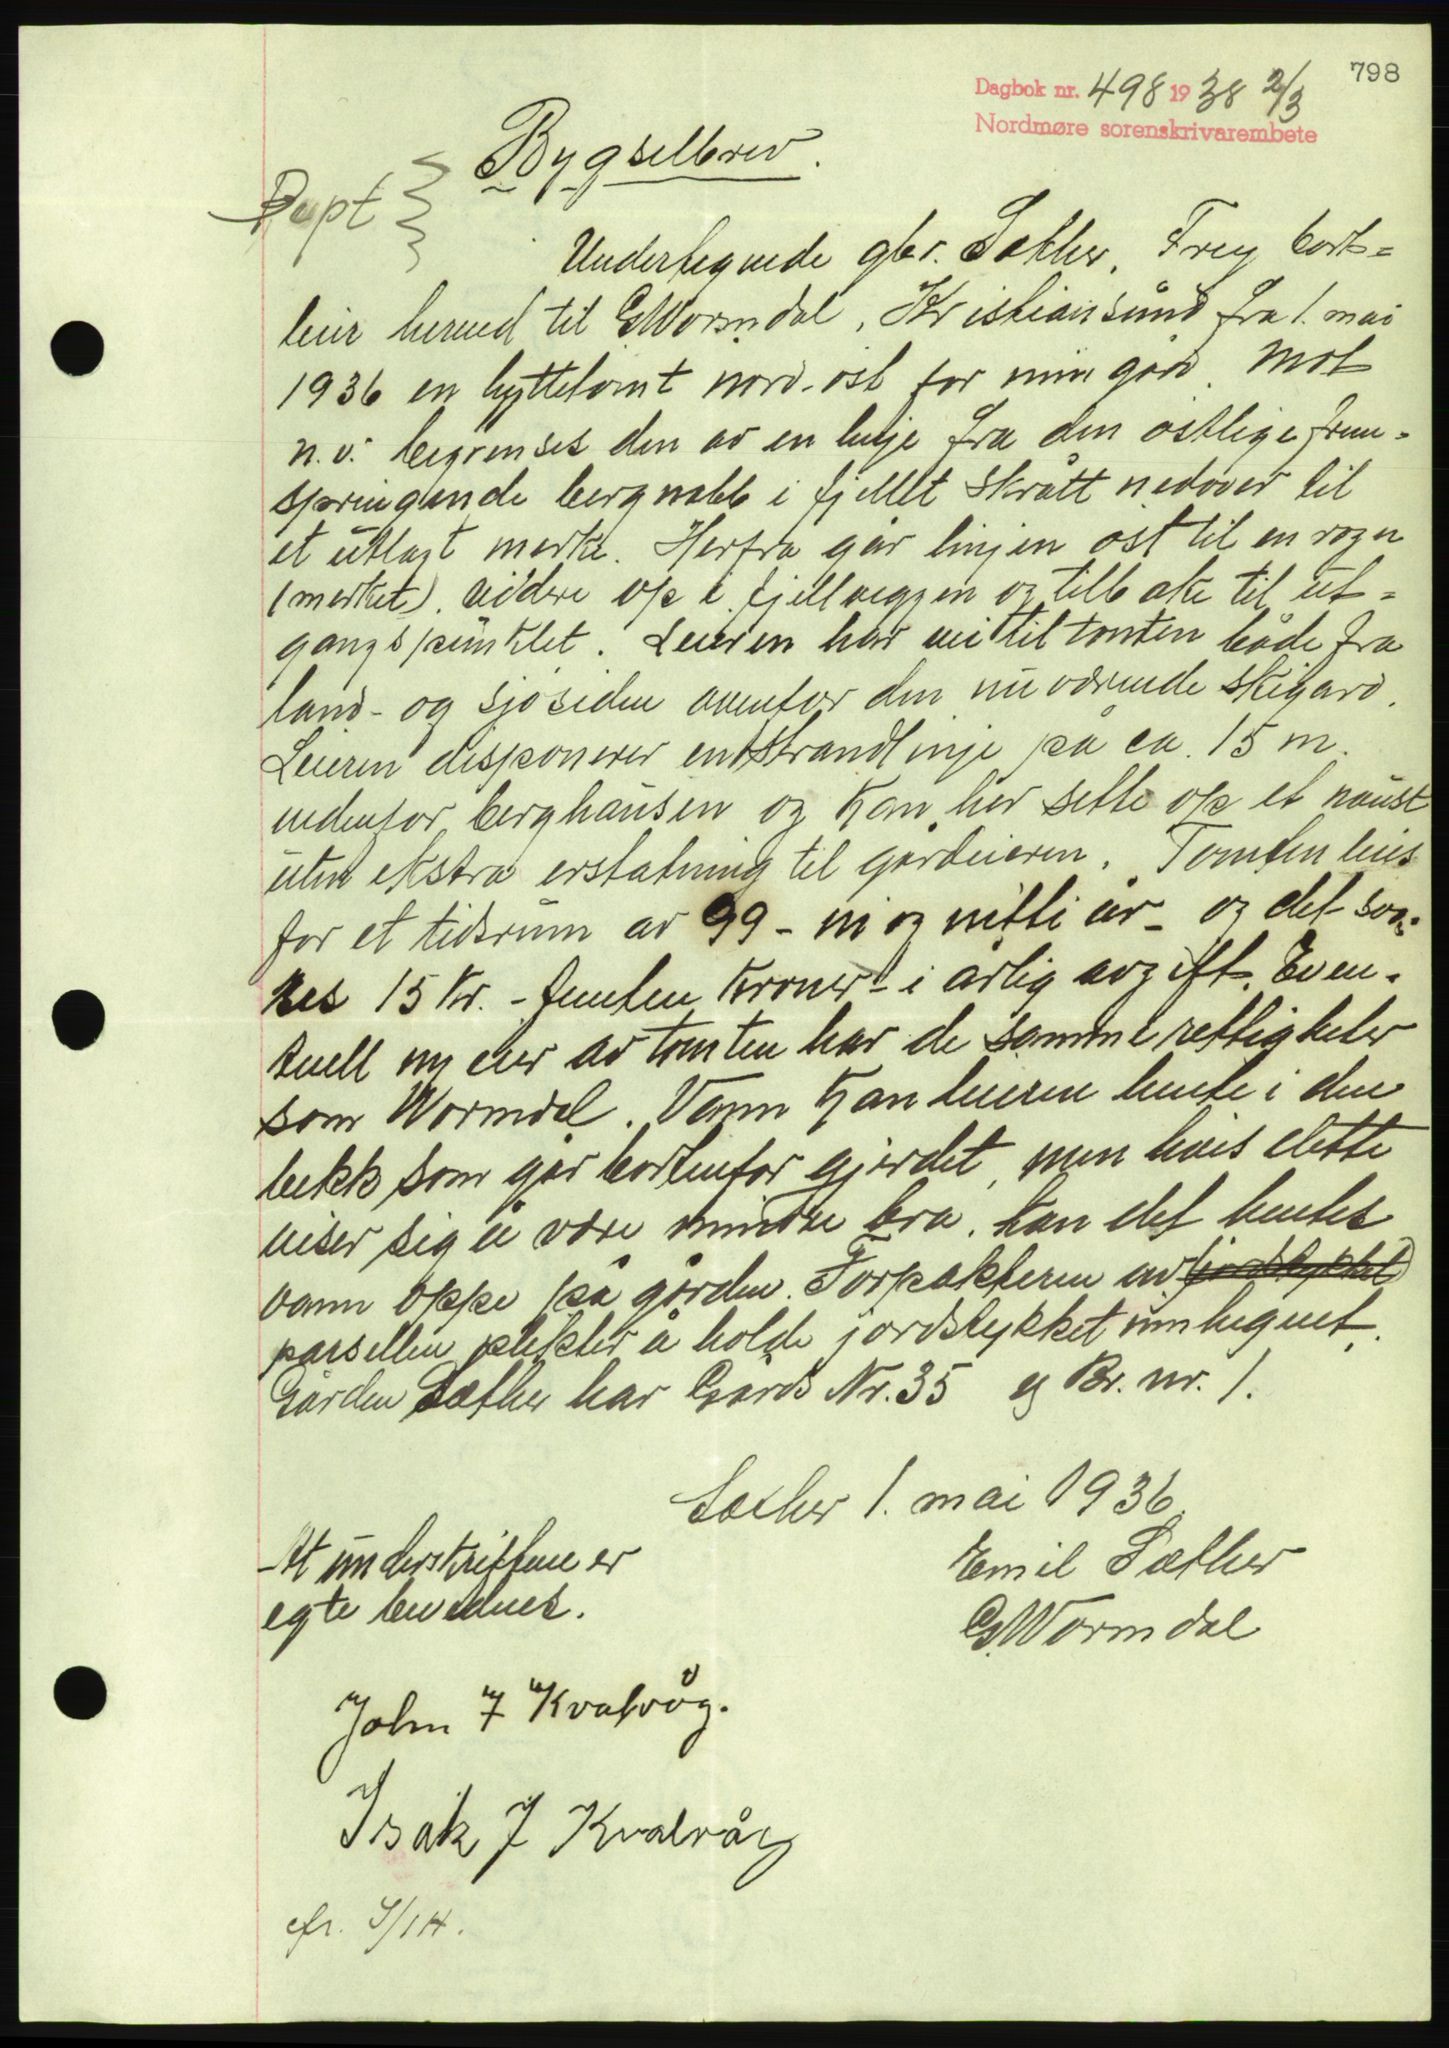 798
Dagbok nr. 498 1938 2/3
Nordmøre sorenskrivarembete
Bygselbrev.
Undertegnede gbr. Sæther, Frei bort-
leier herved til G. Wormdal, Kristiansund fra 1. mai
1936 en hyttetomt nord-ost for min gård. Mot
n.v. begrenses den av en linje fra den ostlige frem-
springende bergnabb i fjellet skrått nedover til
et utlagt merke. Herfra går linjen ost til en rogn
(merket), videre op i fjellveggen og tilbake til ut-
gangspunktet. Leieren har vei til tomten både fra
land- og sjosiden ovenfor den nuværende skigard.
Leieren disponerer en strandlinje på ca. 15 m.
nedenfor berghausen og kan her sette op et naust
uten ekstra erstatning til gårdeieren. Tomten leies
for et tidsrum av 99 - ni og nitti år - og det sva-
res 15 kr. - femten kroner - i årlig avgift. Even-
tuell ny eier av tomten har de samme rettigheter
som Wormdal. Vann kan leieren hente i den
bekk som går bortenfor gjerdet, men hvis dette
viser sig å være mindre bra, kan det hentes
vann oppe på gården. Forpakteren av (jordstykket)
parsellen plikter å holde jordstykket innhegnet.
Gården Sæther har Gårds Nr. 35 og Br. nr. 1.
Sæther 1. mai 1936.
At underskriftene er
egte bevidnes.
Emil Sæther
G. Wormdal
John J Kvalvåg.
Isak J Kvalvåg
cfr. 5/14.